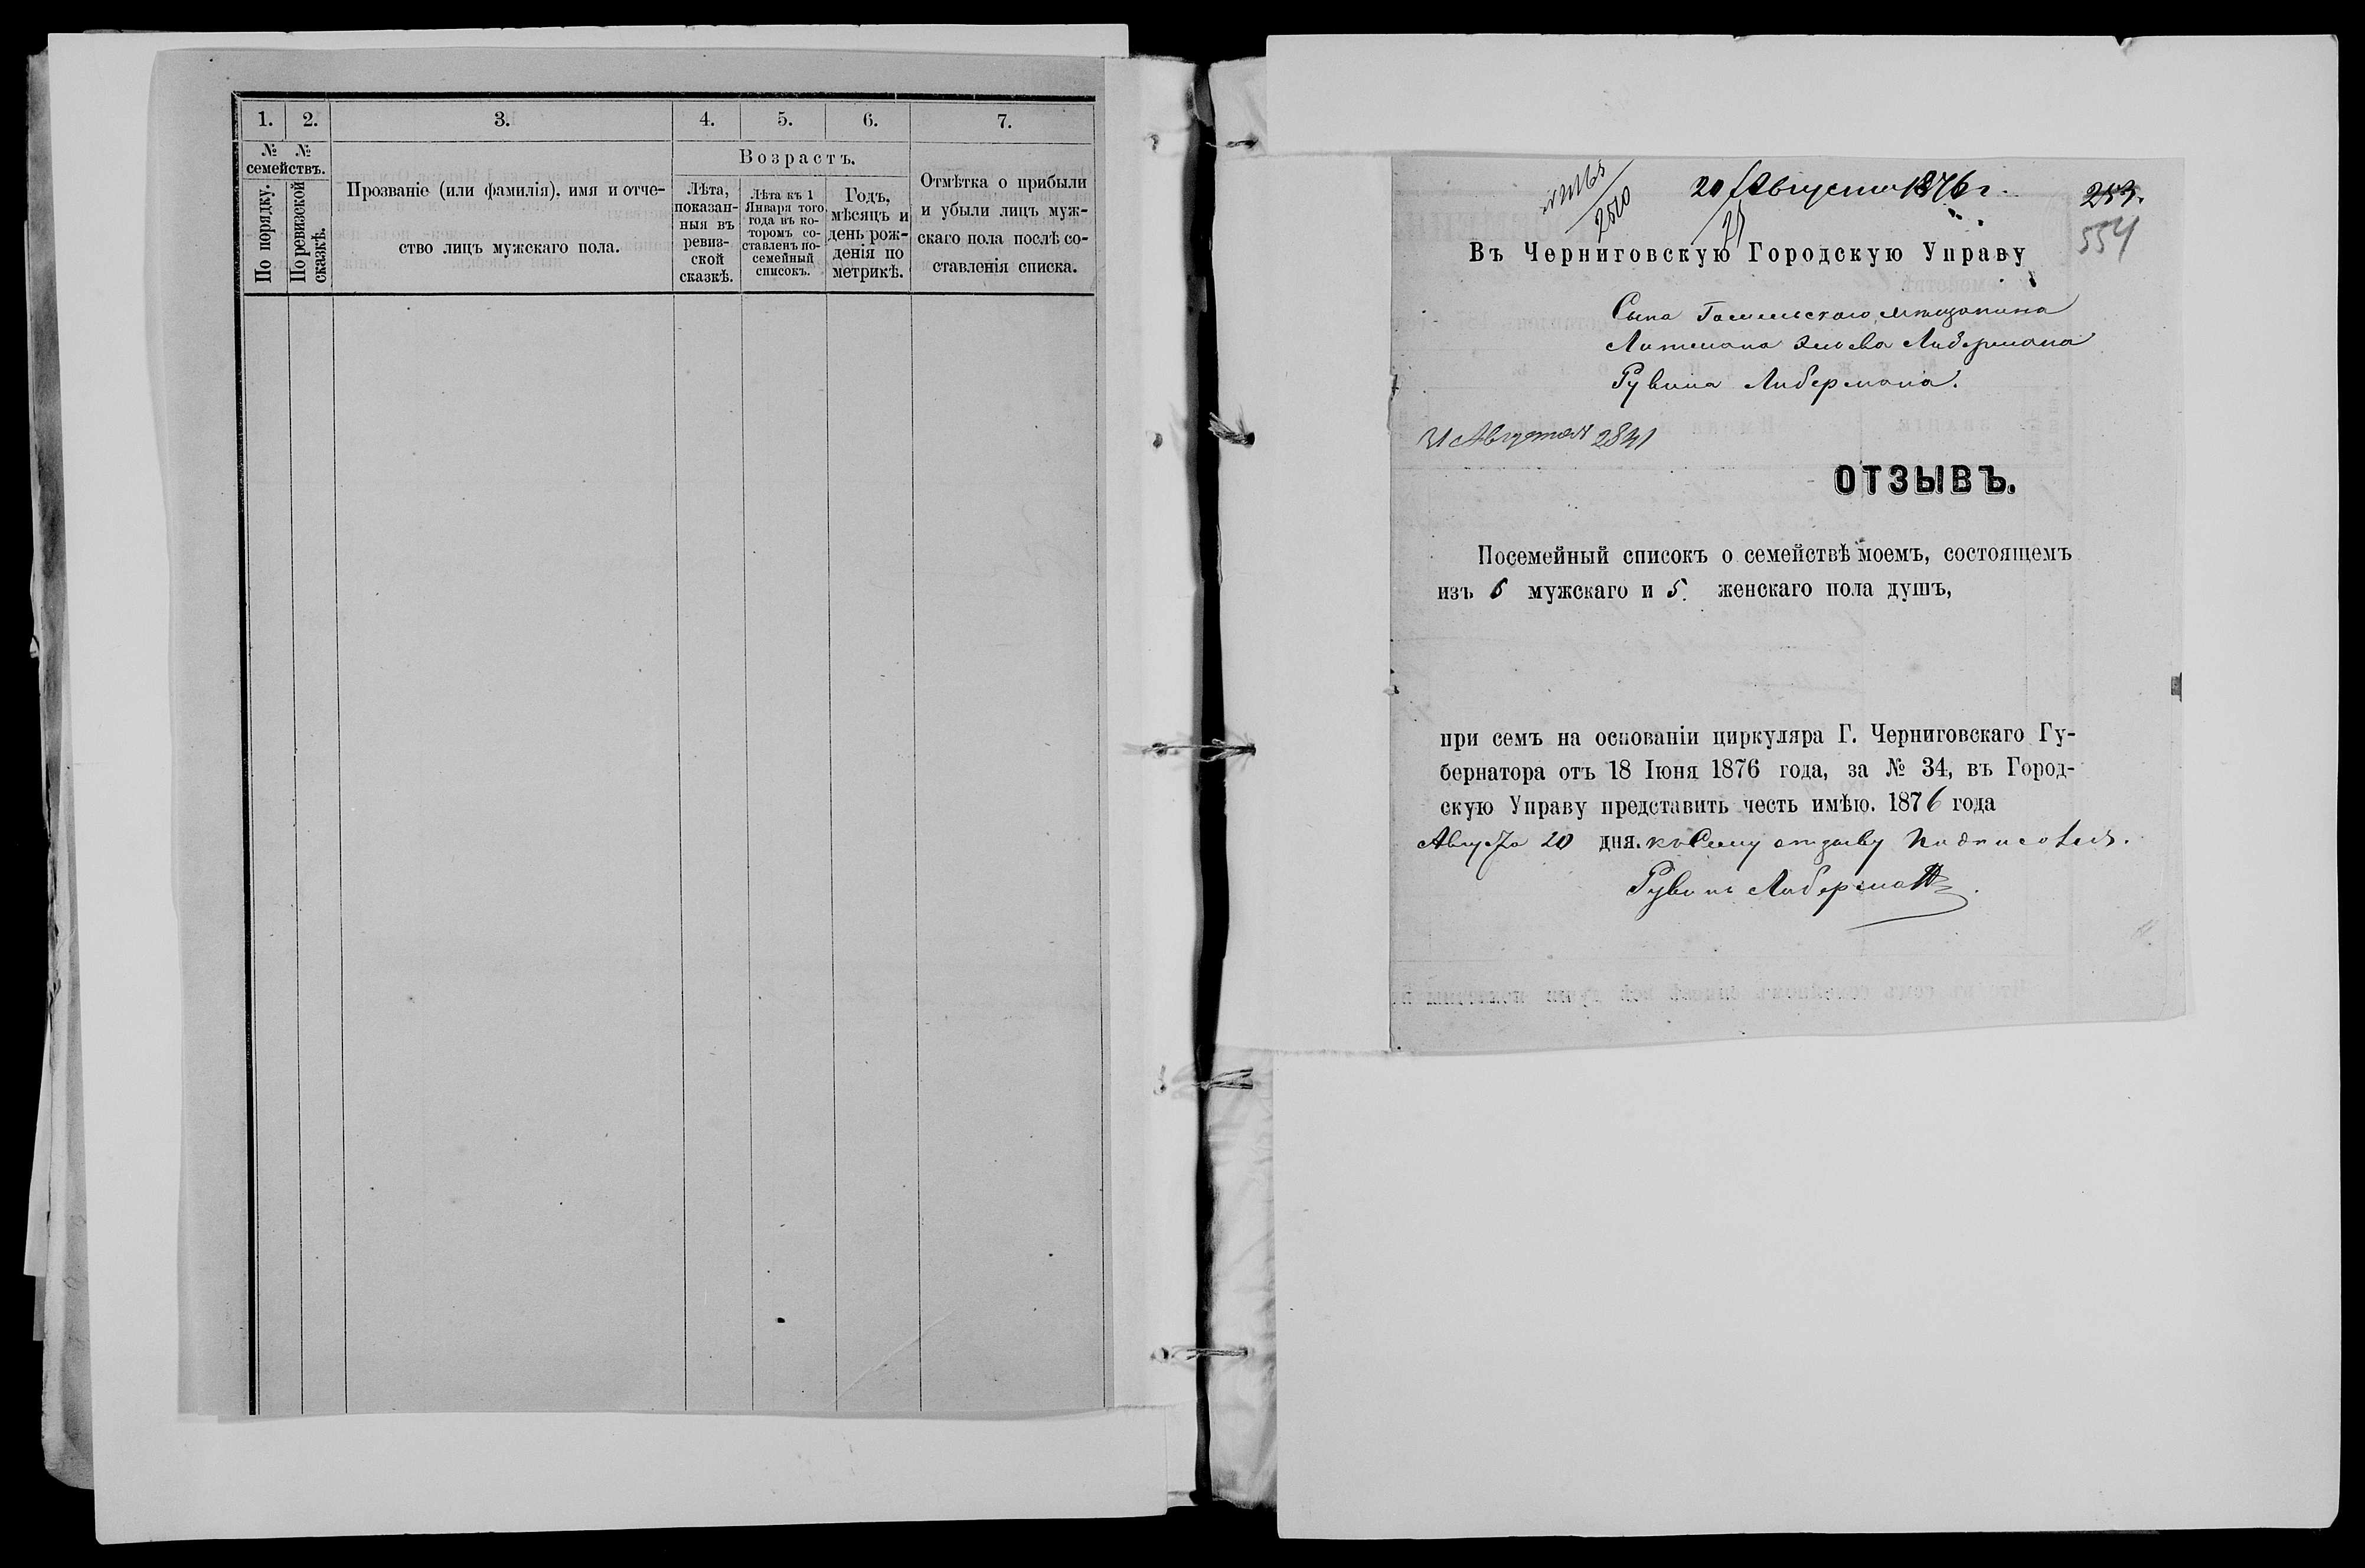 1. 2. 3. 4. 5. 6. 7.
№ №
семействъ.
По порядку.
По ревизской
сказкѣ.
Прозваніе (или фамилія), имя и отче-
ство лицъ мужскаго пола.
Возрастъ.
Лѣта,
показан-
ныя въ
ревиз-
ской
сказкѣ.
Лѣта къ 1
Января того
года въ ко-
торомъ со-
ставленъ по-
семейный
списокъ.
Годъ,
мѣсяцъ и
день рож-
денія по
метрикѣ.
Отмѣтка о прибыли
и убыли лицъ муж-
скаго пола послѣ со-
ставленія списка.
20 Августа 1876 г.
253.
554
2510
21
Въ Черниговскую Городскую Управу
Сына Гомельскаго мѣщанина
Либермана
Рувина Либермана.
31 Августа 2841
ОТЗЫВЪ.
Посемейный списокъ о семействѣ моемъ, состоящемъ
изъ 6 мужскаго и 5 женскаго пола душъ,
при семъ на основаніи циркуляра Г. Черниговскаго Гу-
бернатора отъ 18 Іюня 1876 года, за № 34, въ Город-
скую Управу представить честь имѣю. 1876 года
Августа 20 дня. къ Сему отзыву
Рувинъ Либерман